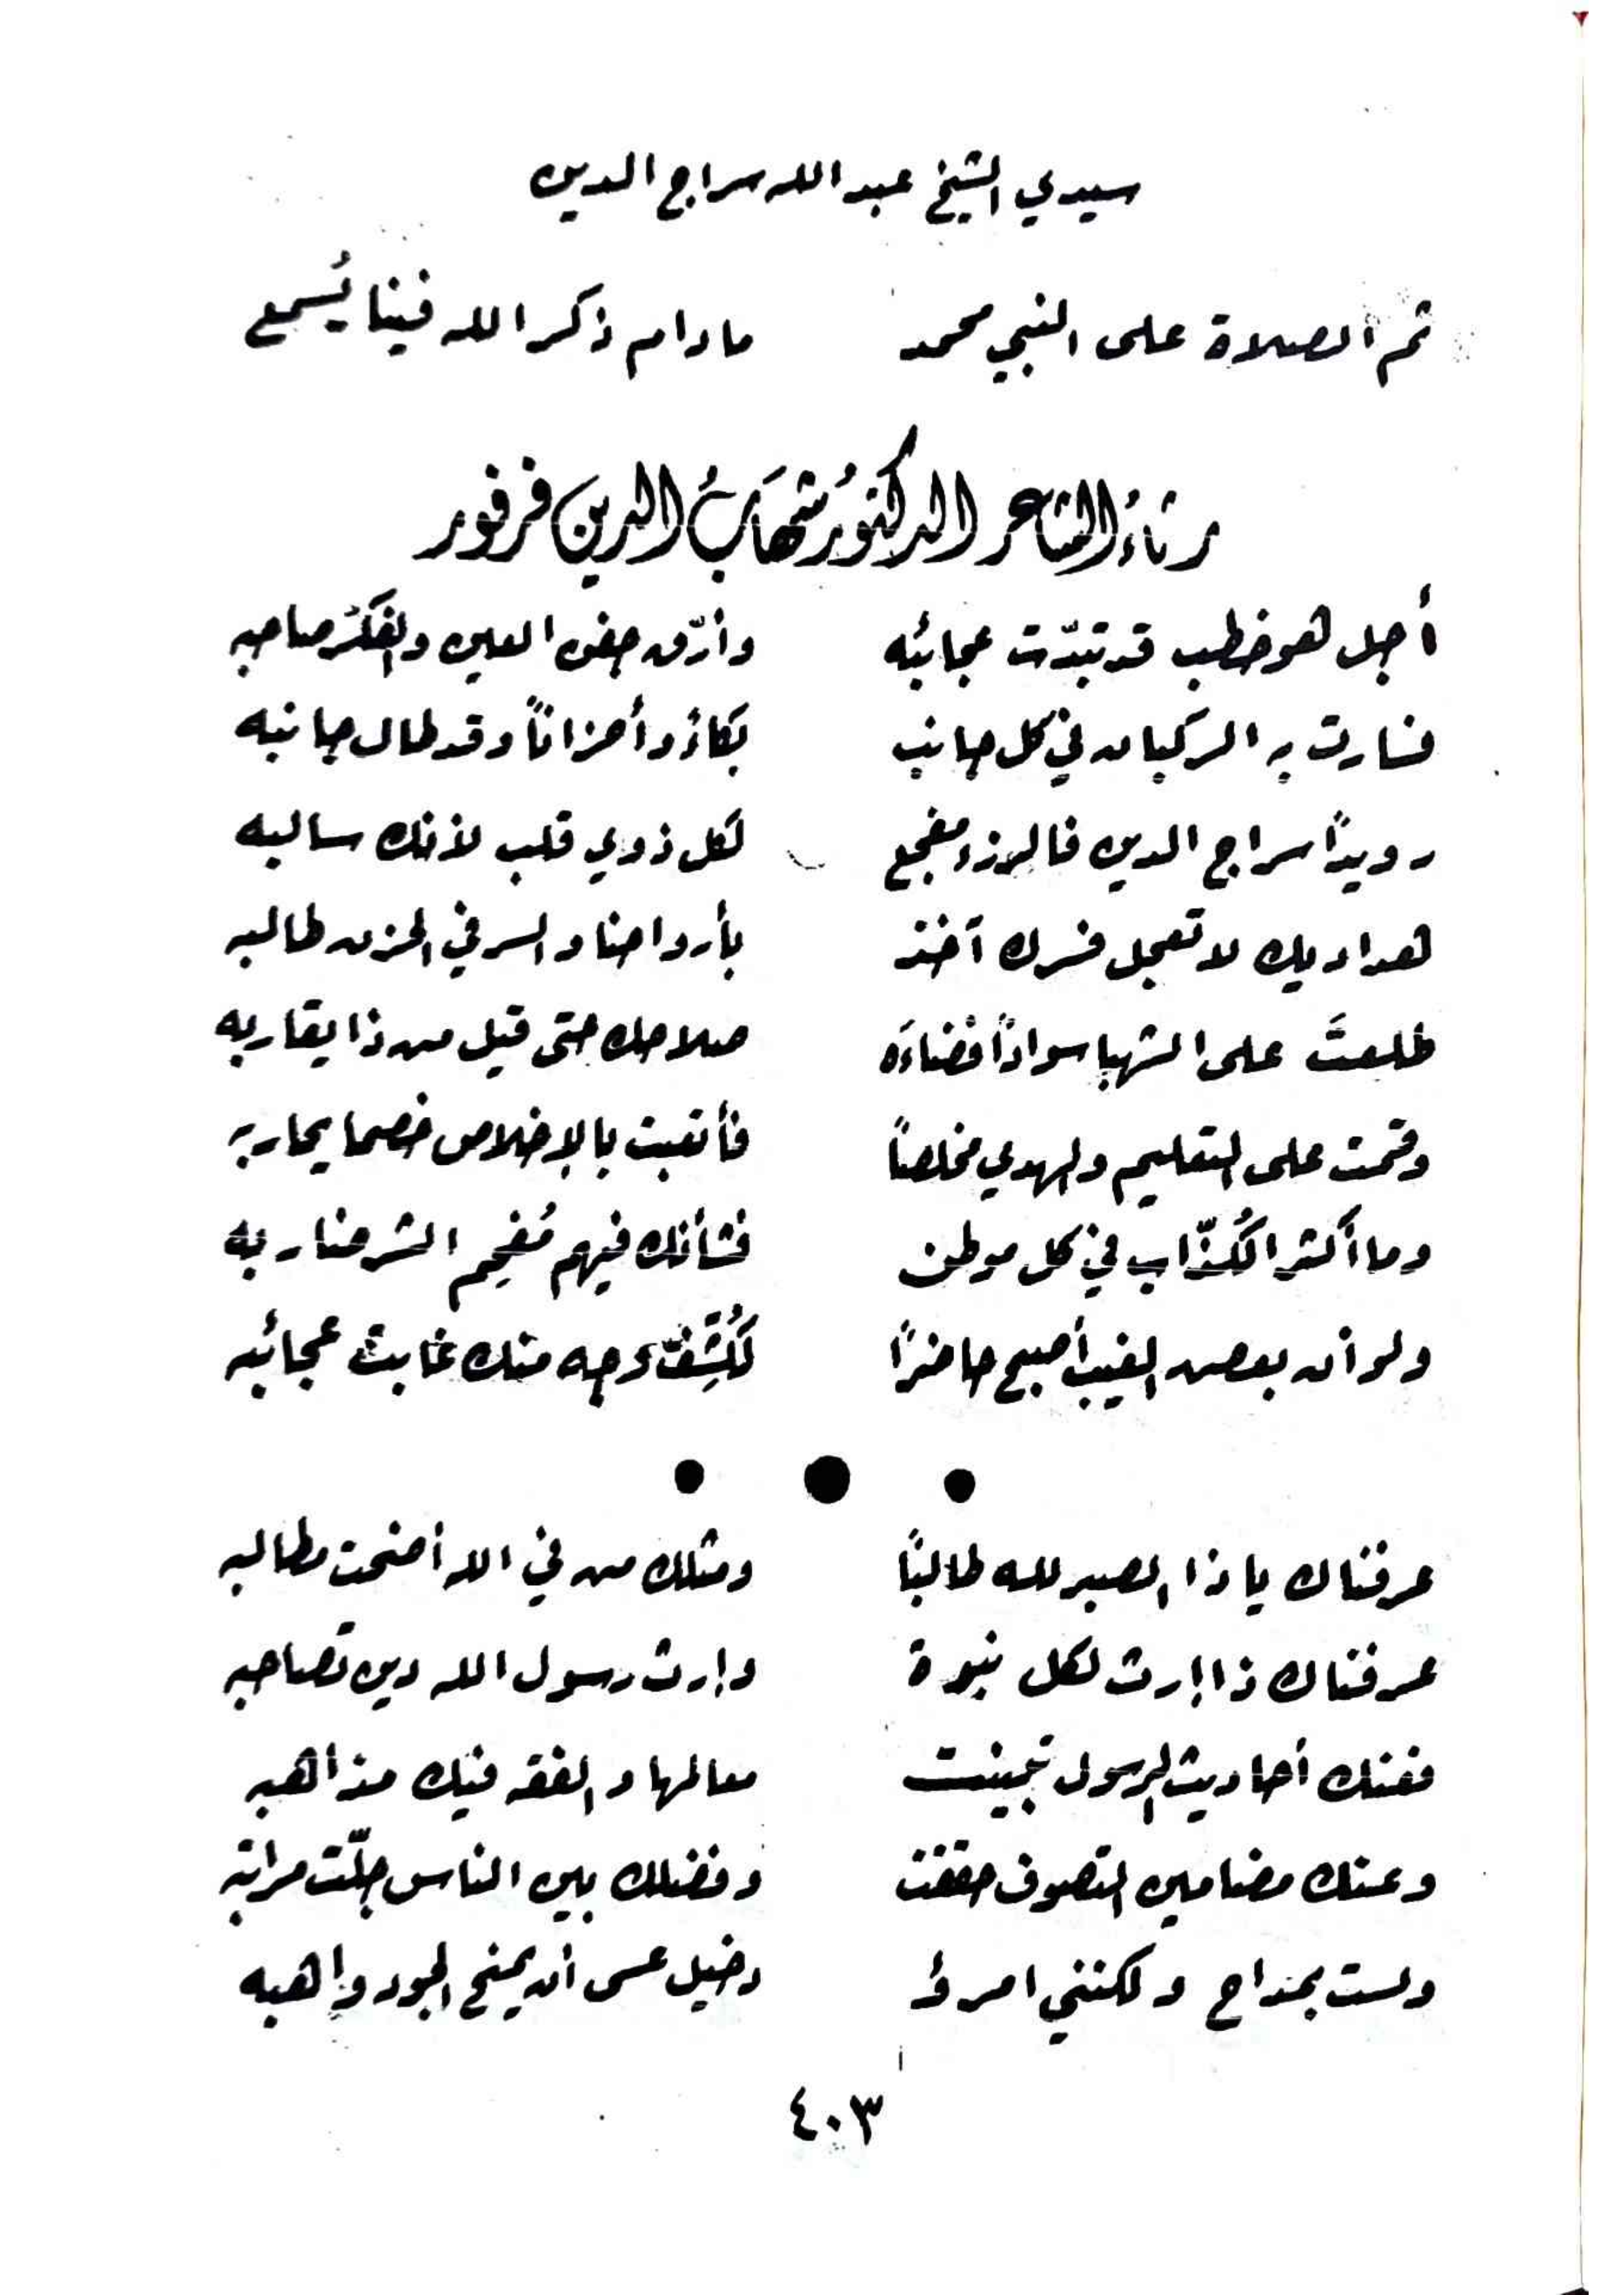 سيدي الشيخ عبد الله سراج الدين
ثم الصلاة على النبي محمد مادام ذكر الله فينا يُسمع
رثاءُ الشاعر الدكتورُ شهابُ الدين فرفور
أجل هو خطب قد تبدّت عجائبُه وأرّق جفن العين والفكرُ صاحبه
فسارت به الركبان في كل جانب بكاءً وأحزاناً وقد طال جانبه
رويداً سراج الدين فالرزء مفجع لكل ذوي قلب لأنك سالبه
هداديك لا تعجل فسرك آخذ بأرواحنا والسر في الحزن طالبه
طلعتَ على الشهبا سواداً فضاءَه صلاحك حتى قيل من ذا يقاربه
وقمت على التعليم والهدي مخلصاً فأتعبت بالإخلاص خصما يحاربه
وما أكثر الكُذّاب في كل موطن فشأنك فيهم مُفحِم الشر ضاربه
ولو أن بعض الغيب أصبح حاضراً لكُشِفَ وجه منك غابت عجائبه
عرفناك يا ذا الصبر لله طالباً ومثلك من في الله أضحت مطالبه
عرفناك ذا إرث لكل نبوة وإرث رسول الله دين تصاحبه
فعنك أحاديث الرسول تبينت معالمها والفقه فيك مذاهبه
وعنك مضامين التصوف حققت وفضلك بين الناس جلّت مراتبه
ولست بمداح ولكنني امرؤ دخيل عسى أن يمنح الجود واهبه
٤٠٣